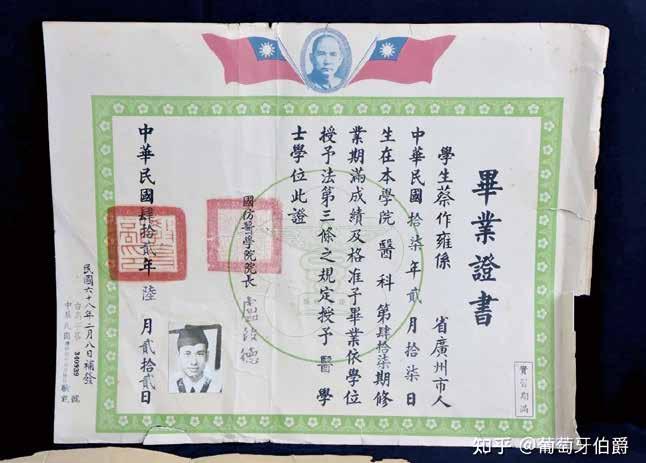 畢業證書
學生蔡作雍係　省廣州市人
中華民國拾柒年貳月拾柒日
生在本學院醫科第肆拾柒期修
業期滿成績及格准予畢業依學位
授予法第三條之規定授予醫學
士學位此證
國防醫學院院長
中華民國肆拾貳年陸月貳拾貳日
民國六十八年二月八日補發
340939
實習期滿
知乎 @葡萄牙伯爵